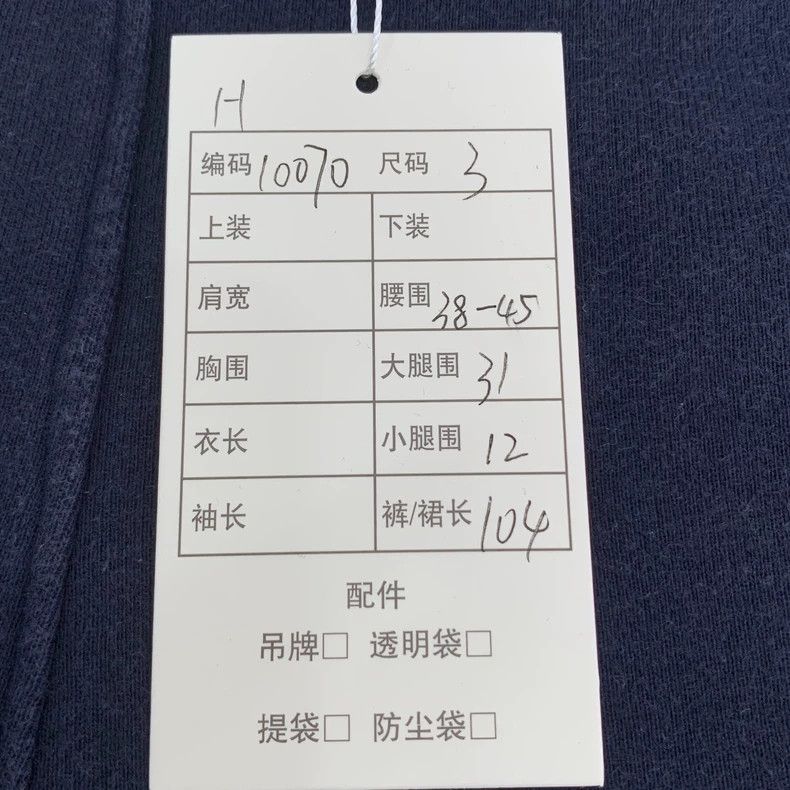 H
编码 10070 尺码 3
上装 下装
肩宽 腰围 38-45
胸围 大腿围 31
衣长 小腿围 12
袖长 裤/裙长 104
配件
吊牌□ 透明袋□
提袋□ 防尘袋□